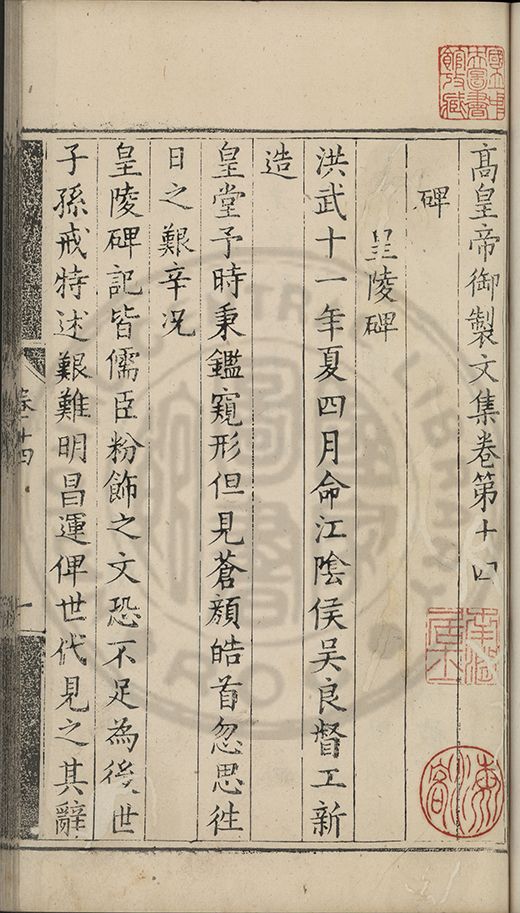 高皇帝御製文集卷第十四
碑
皇陵碑
洪武十一年夏四月命江陰侯吳良督工新
造
皇堂予時秉鑑窺形但見蒼顏皓首忽思往
日之艱辛况
皇陵碑記皆儒臣粉飾之文恐不足為後世
子孫戒特述艱難明昌運俾世代見之其辭
卷十四
一
國立中
央圖書
館收藏